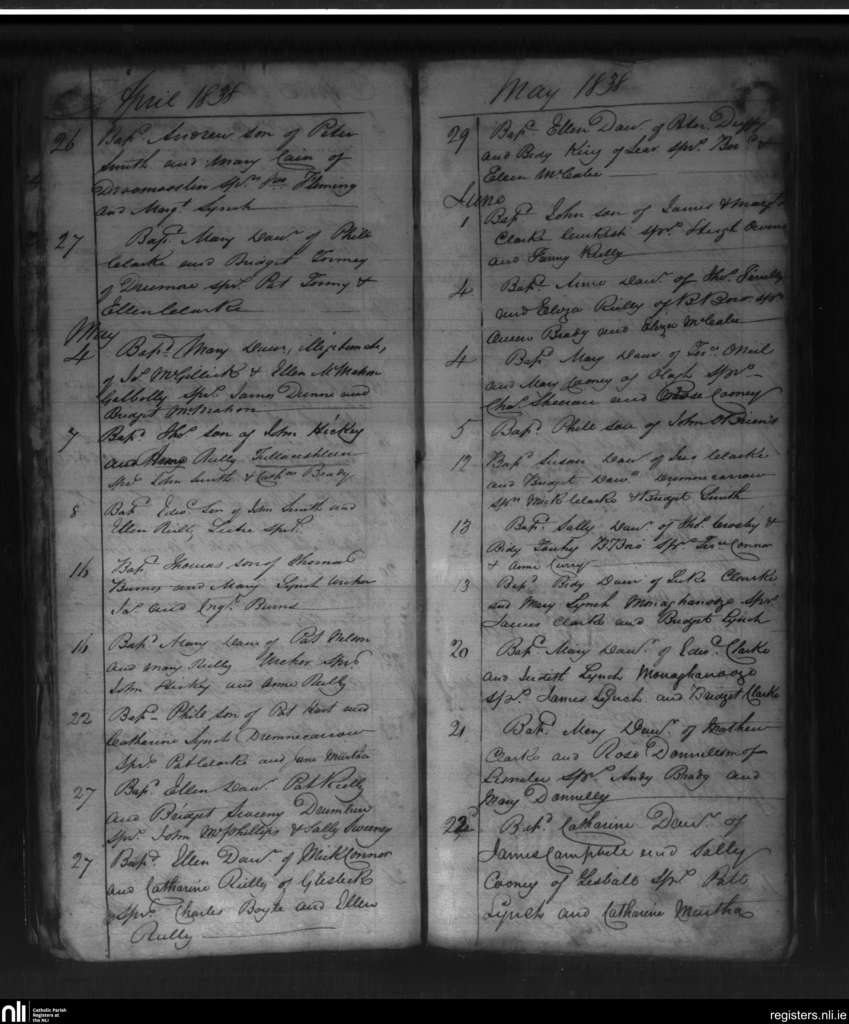 April 1838
26 Bapd. Andrew son of Peter
Smith and Mary Cain of
Sprs. Fleming
and Margt. Lynch
27 Bapt. Mary Daur. of Phile
Clarke and Bridget Tormey
of Drumore Sprs. Pat Tormy &
Ellen Clarke
May
4 Bapd. Mary Daur, illigitimate,
of Jas. McGillick & Ellen McMahon
Sprs. James Dunne and
Bridget McMahon
7 Bapd. Thos. son of John Hickey
and Reilly
Sprs. John Smith & Cathne Brady
8 Bapt. Edwd. Son of John Smith and
Ellen Reilly, Sprs.
16 Bapd. Thomas son of Thomas
Burns and Mary Lynch Archer
Jas. and Burns
16 Bapd. Mary Daur of Pat
and Mary Reilly Archer Sprs.
John Hickey and Anne Reilly
22 Bapd. Phile son of Pat Hart and
Catharine Lynch Drumnecarrow
Sprs. Pat Clarke and Jane Murtha
27 Bapd. Ellen Daur. Pat Reilly
and Bridget Sweeny Drumlun
Sprs. John McPhillips & Sally Sweeney
27 Bapd. Ellen Daur. of Mick Connor
and Catharine Reilly of
Sprs. Charles Boyle and Ellen
Reilly
May 1838
29 Bapd. Ellen Daur. of Peter Duffy
and Bidy King of Lear Sprs. &
Ellen McCabe
June
1 Bapd. John son of James & Margt.
Clarke Sprs. Hugh Owens
and Fanny Reilly
4 Bapd. Anne Daur. of Thos.
and Eliza Reilly of Sprs.
Owen Brady and Eliza McCabe
4 Bapt. Mary Daur of ONeil
and Mary Cooney of Sprs.
Sheeran and Rose Cooney
5 Bapd. Phile son of John O Briens
12 Bapd. Susan Daur of Clarke
and Bridget Daur. Drumnecarrow
Sprs. Mick Clarke & Bridget Smith
13 Bapt. Sally Daur. of Thos. Crosby &
Bidy Sprs. Connor
& Anne Curry
13 Bapt. Bidy Daur of Luke Clarke
and Mary Lynch Monaghanooze Sprs.
James Clarke and Bridget Lynch
20 Bapd. Mary Daur. of Edwd. Clarke
and Judith Lynch Monaghanooze
Sprs. James Lynch and Bridget Clarke
21 Bapt. Mary Daur. of Mathew
Clarke and Rose Donnellen of
Sprs. Andy Brady and
Mary Donnelly
22d Bapd. Catharine Daur. of
James Campbell and Sally
Cooney of Lisball Sprs. Patt
Lynch and Catharine Murtha
nli Catholic Parish
Registers at
the NLI
registers.nli.ie